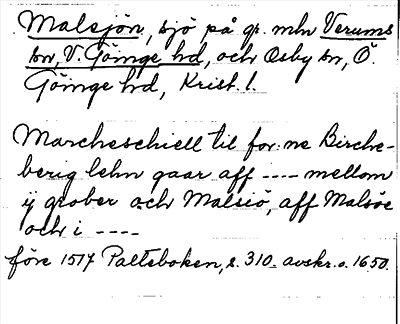 Malsjön, sjö på gr. mln Verums
sn, V. Göinge hd, och Osby sn, Ö.
Göinge hd, Krist. l.
Marcheschiell til for: ne Birche-
berig lehn gaar aff ---- mellom
ij grober och Malsiö, aff Malsöe
och i ----
före 1517 Palteboken, s. 310. avskr. o. 1650.